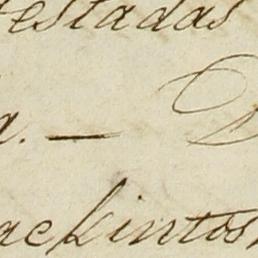 estadas
a. — D
ackintos